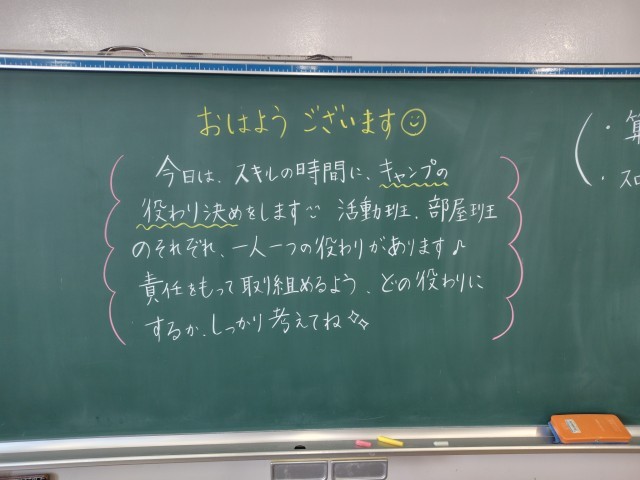 おはようございます
今日は、スキルの時間に、キャンプの
役わり決めをします 活動班、部屋班
のそれぞれ、一人一つの役わりがあります♪
責任をもって取り組めるよう、どの役わりに
するか、しっかり考えてね
・算
・スロ